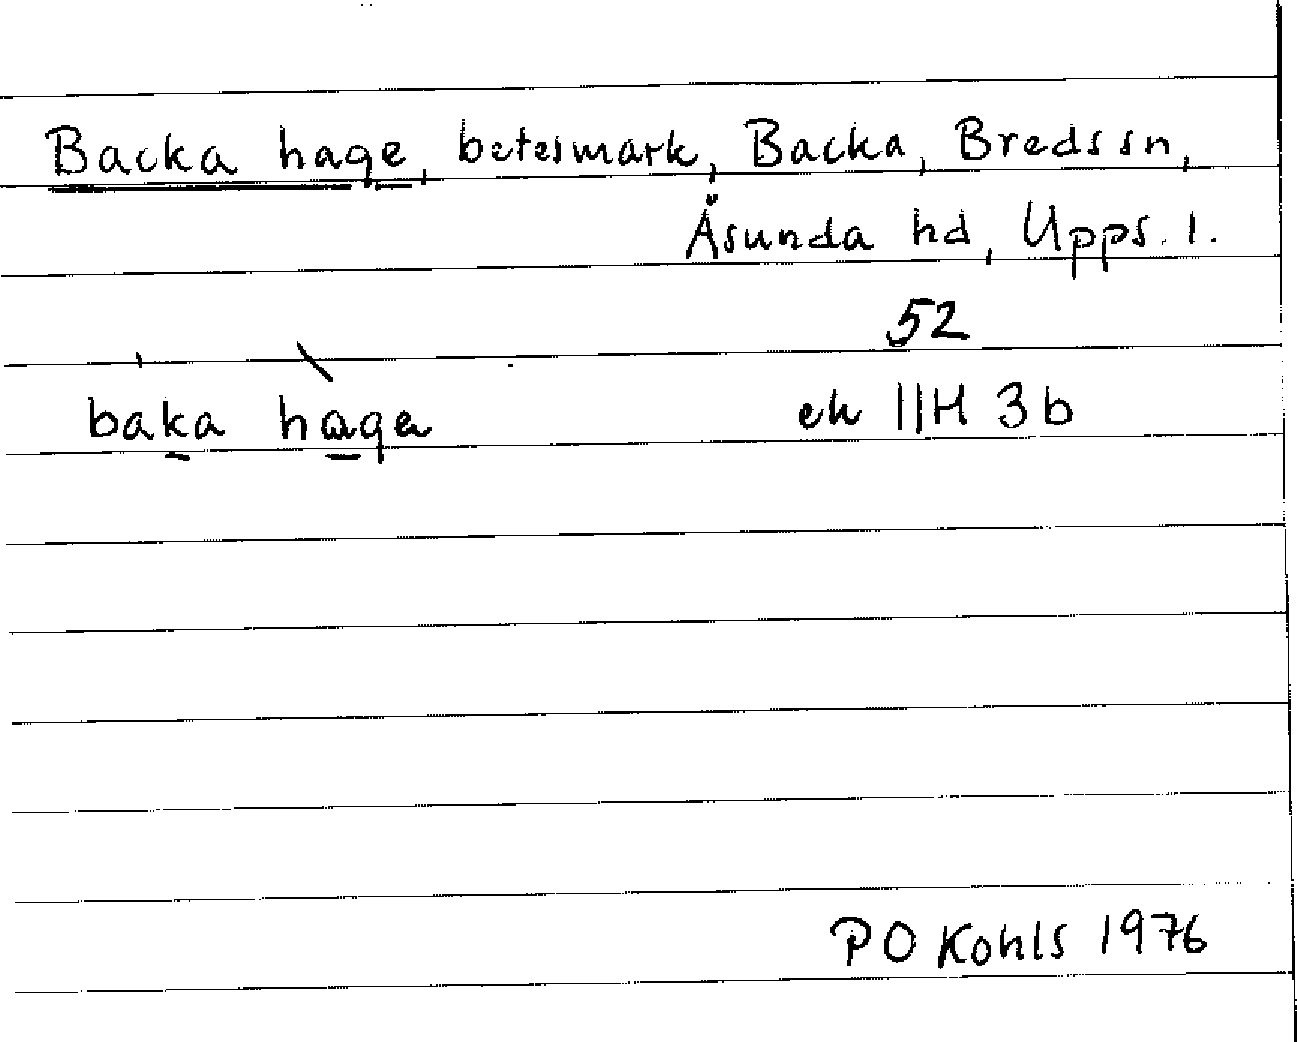 Backa hage, betesmark, Backa, Breds sn,
Åsunda hd, Upps. l.
52
baka haga
ek 11H 3b
PO Kohls 1976